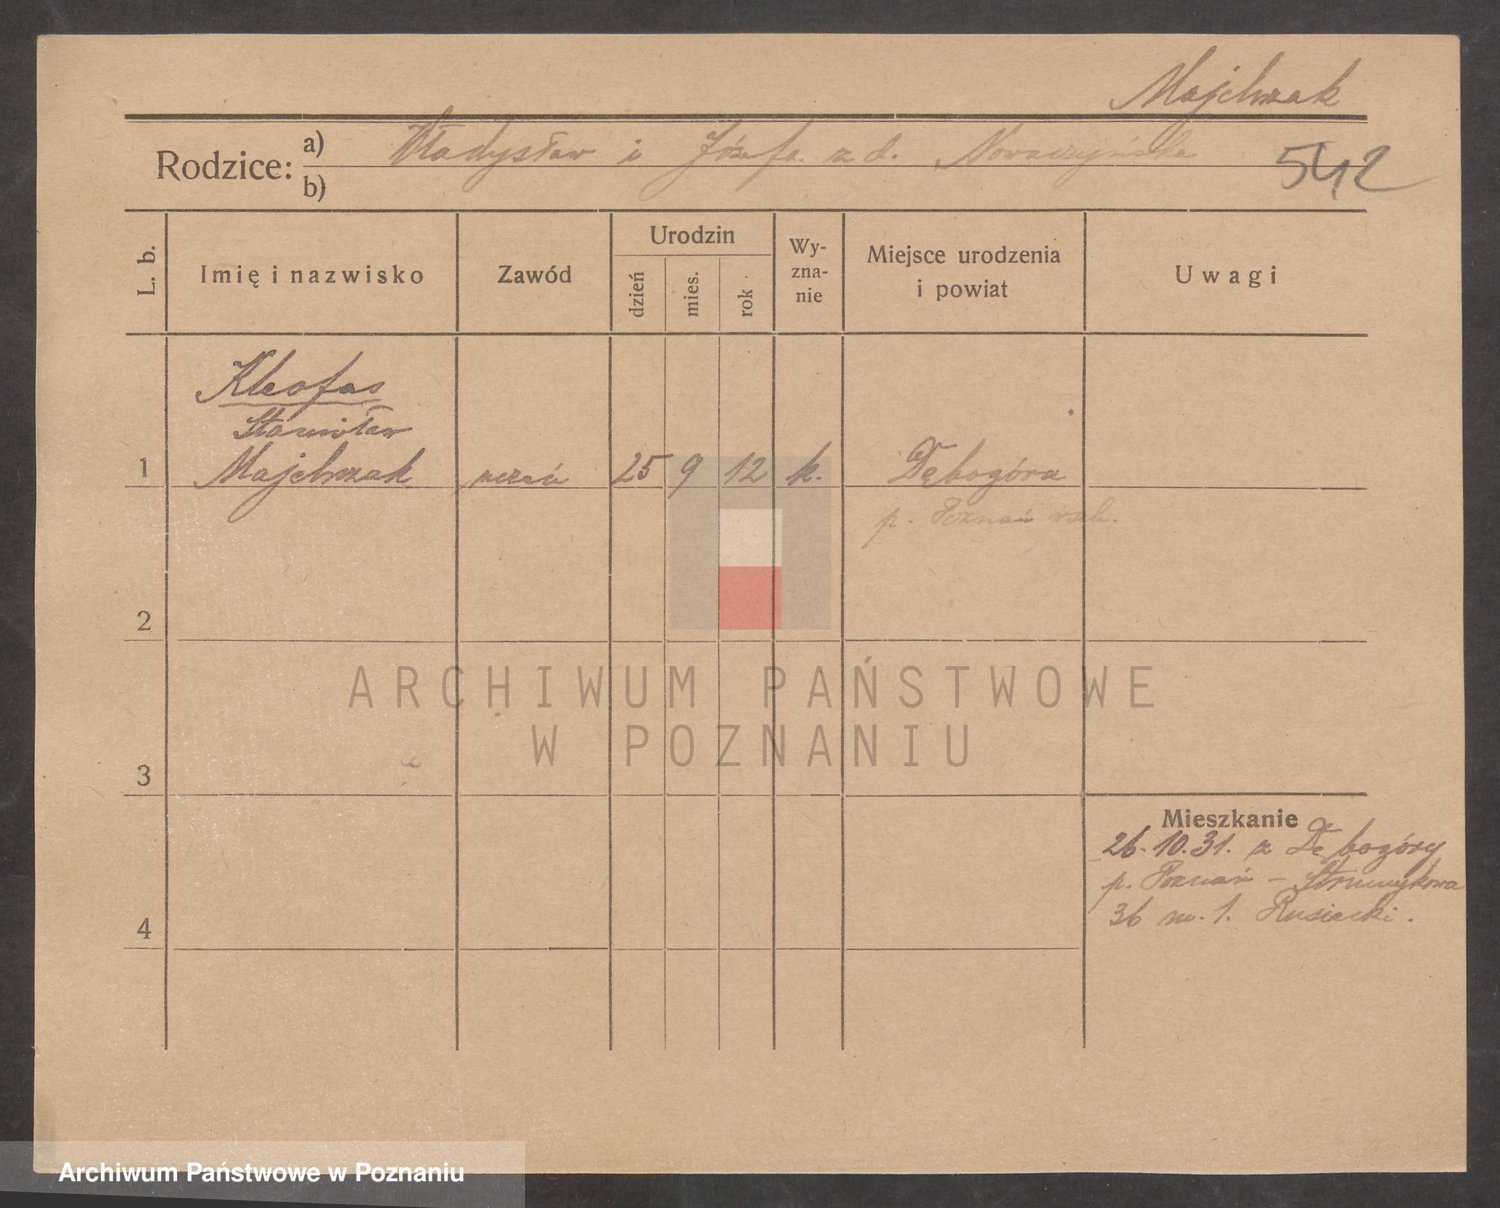 Majchrzak
Rodzice: a) Władysław i Józefa z d. Nowaczyńska
b)
542
L. b.
Imię i nazwisko
Zawód
Urodzin
dzień
mies.
rok
Wy-
zna-
nie
Miejsce urodzenia
i powiat
Uwagi
Kleofas
Stanisław
1 Majchrzak uczeń 25 9 12 k. Dębogóra
p. Poznań wsch.
2
3
4
Mieszkanie
26.10.31. z Dębogóry
p. Poznań - Strumykowa
36 m. 1. Rusiecki.
ARCHIWUM PAŃSTWOWE
W POZNANIU
Archiwum Państwowe w Poznaniu